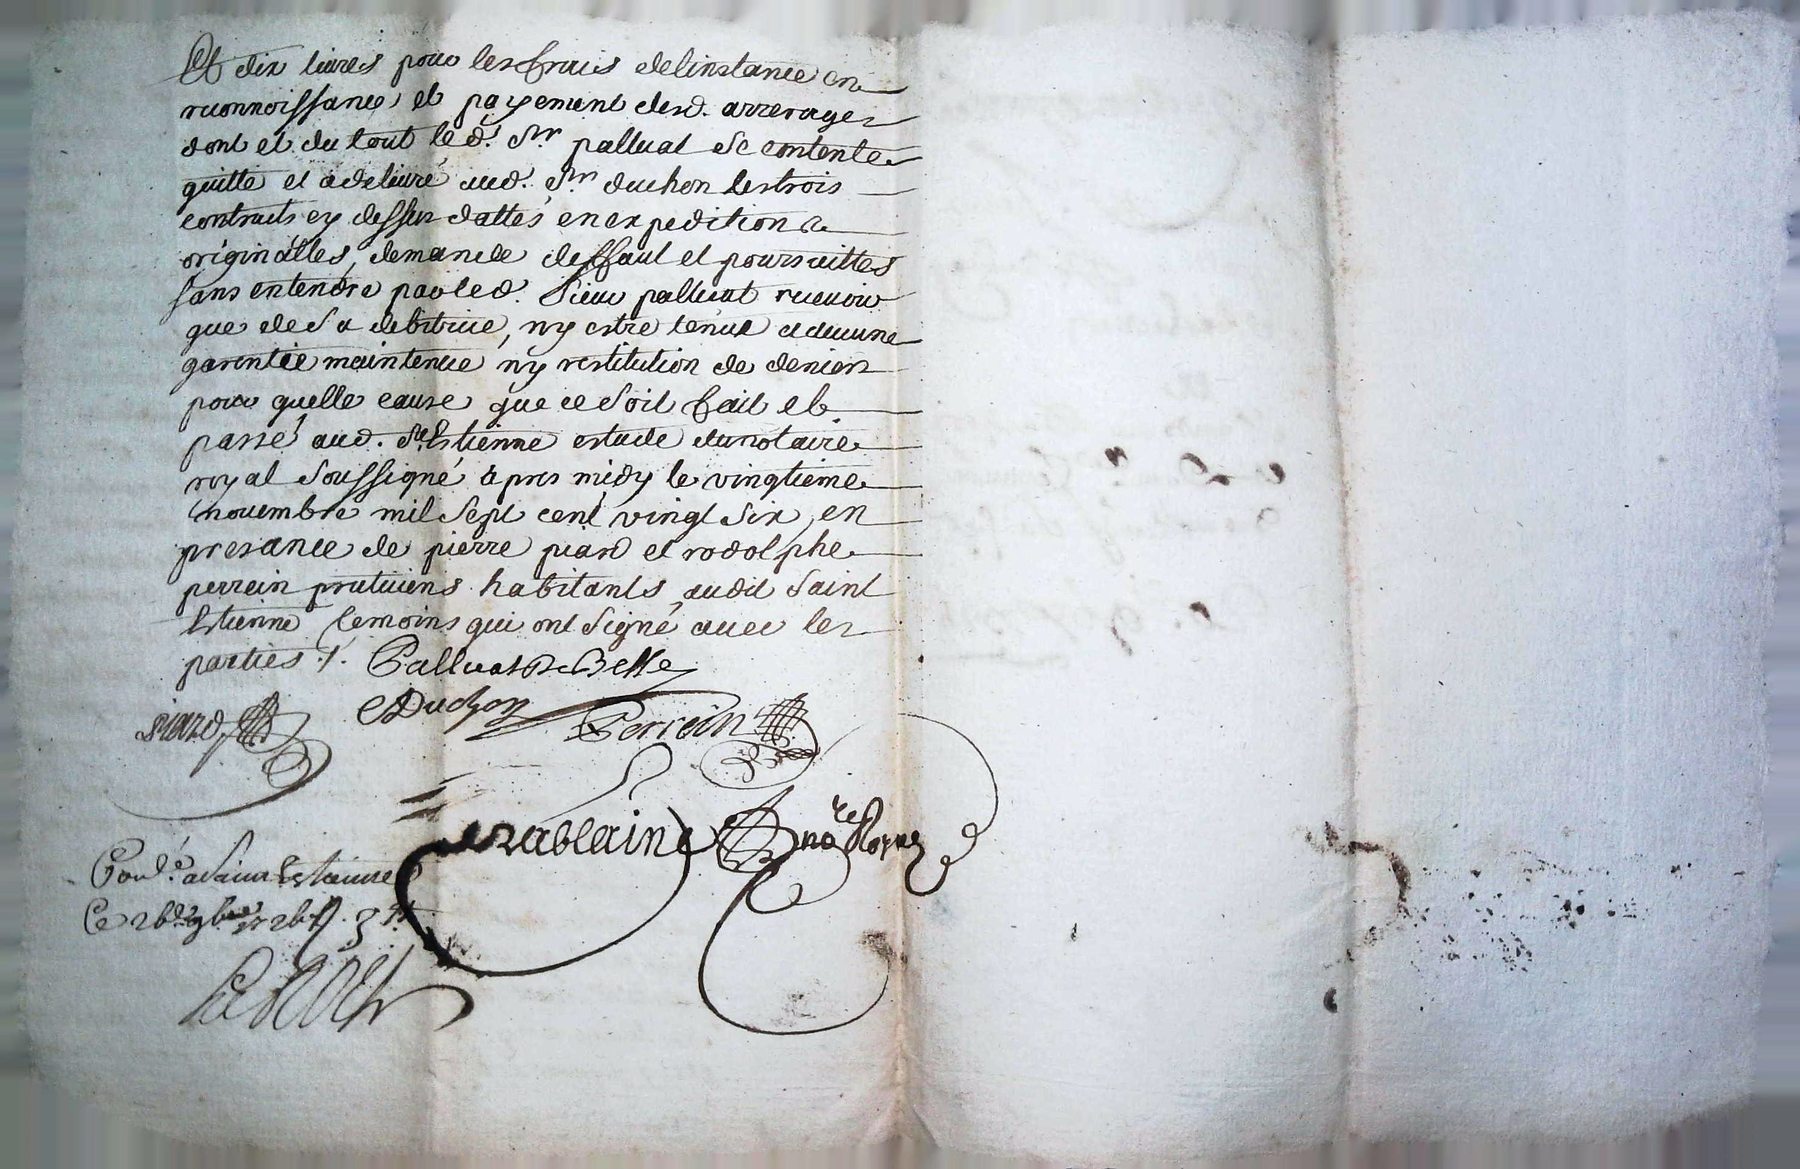 Et dix livres pour les frais delinstance en
reconnoissance et payement desd. arrerages
dont et du tout led. Sr. palluat se contente
quitte et a delivré aud. Sr. duchon les trois
contraits cy dessus dattés en expedition &
originalles, demande deffaut et poursuittes
sans entendre par led. Sieur palluat recevoir
que de Sa debitrice, ny estre tenue a aucune
garentie maintenue ny restitution de deniers
pour quelle cause que ce soit fait et
passé aud. St. Estienne estude du notaire
royal soussigné apres midy le vingtieme
novembre mil sept cent vingt six, en
presance de pierre piard et rodolphe
perrein praticiens habitants audit Saint
Estienne temoins qui ont signé avec les
parties ./. Palluat De Besse
piard Duchon Perrein
Rablaine nore Royal
Conlé. a Saint Estienne
Ce